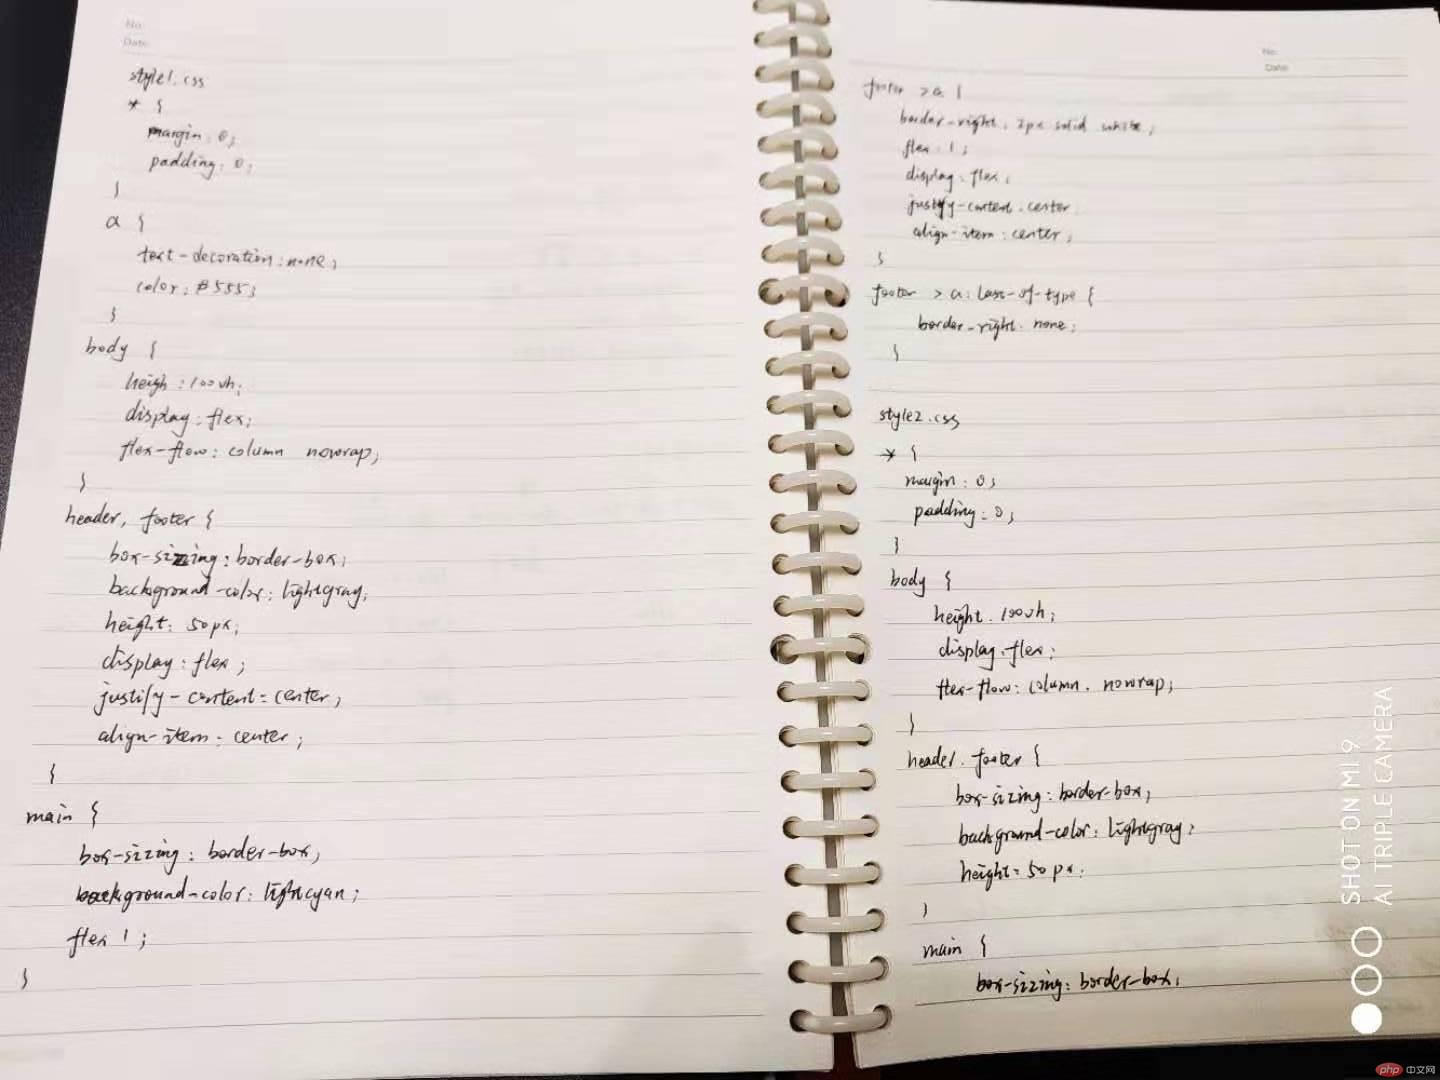 No.
Date.
style1.css
* {
margin: 0;
padding: 0;
}
a {
text-decoration: none;
color: #555;
}
body {
heigh: 100vh;
display: flex;
flex-flow: column nowrap;
}
header, footer {
box-sizing: border-box;
background-color: lightgray;
height: 50px;
display: flex;
justify-content: center;
align-item: center;
}
main {
box-sizing: border-box;
background-color: lightcyan;
flex 1;
}
No.
Date.
footer > a {
border-right: 2px solid white;
flex: 1;
display: flex;
justify-content: center
align-item: center;
}
footer > a:last-of-type {
border-right: none;
}
style2.css
* {
margin: 0;
padding: 0;
}
body {
height: 100vh;
display: flex;
flex-flow: column. nowrap;
}
header. footer {
box-sizing: border-box;
background-color: lightgray;
height: 50px.
}
main {
box-sizing: border-box;
SHOT ON MI 9
AI TRIPLE CAMERA
php 中文网